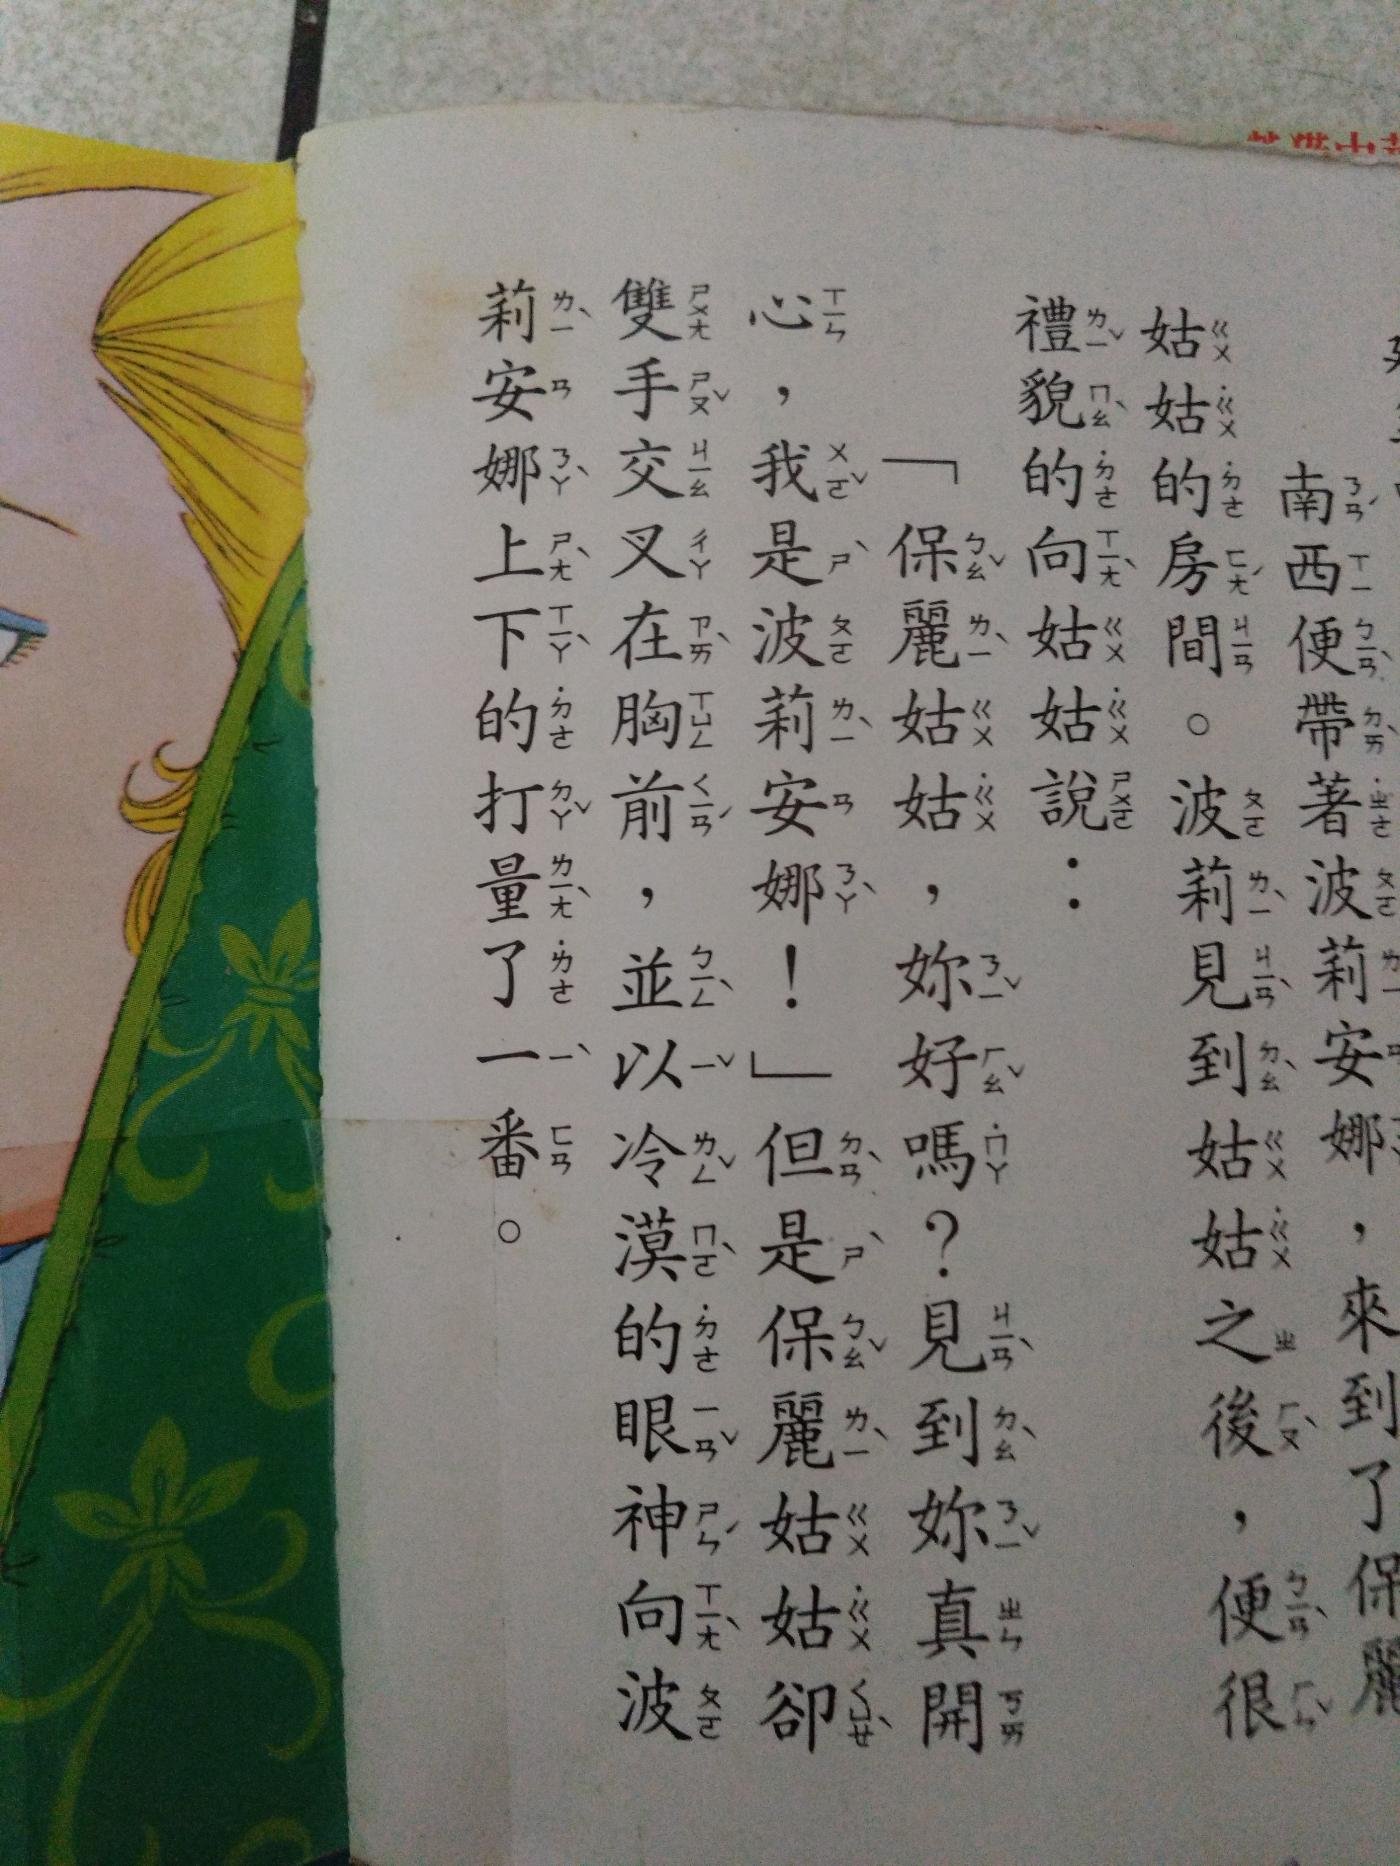 南西便帶著波莉安娜，來到了保麗
姑姑的房間。波莉見到姑姑之後，便很
禮貌的向姑姑說：
「保麗姑姑，妳好嗎？見到妳真開
心，我是波莉安娜！」但是保麗姑姑卻
雙手交叉在胸前，並以冷漠的眼神向波
莉安娜上下的打量了一番。